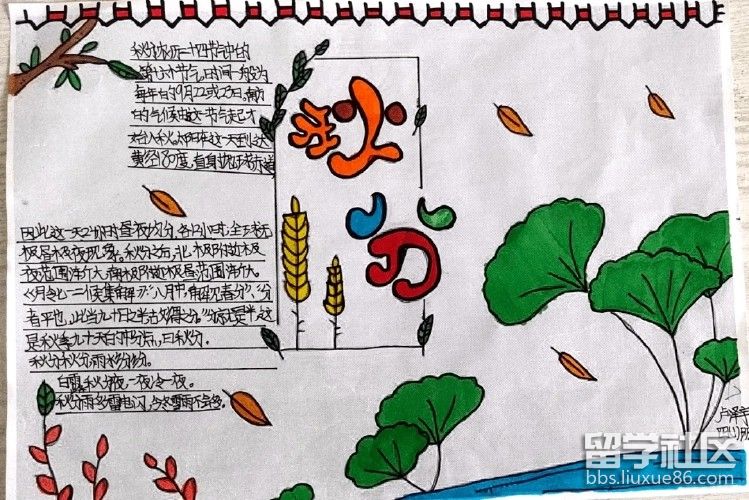 秋分
秋分为二十四节气中的
第十六个节气,时间一般为
每年的9月22或23日,南方
的气候由这一节气起才
始入秋。太阳在这一天到达
黄经180度,直射地球赤道
因此这一天24小时昼夜均分,各12小时;全球无
极昼极夜现象。秋分之后,北极附近极
夜范围渐大,南极附近极昼范围渐大。
《月令七十二候集解》:"八月中,解见春分""分
者平也,此当九十日之半,故谓之分。"分就是半,这
是秋季九十天的中分点,曰秋分。
秋分秋分雨水纷纷。
白露秋分夜一夜冷一夜。
秋分雨多雷电闪,今冬雪雨不会多。
卢泽宇
四川
留学社区
bbs.liuxue86.com